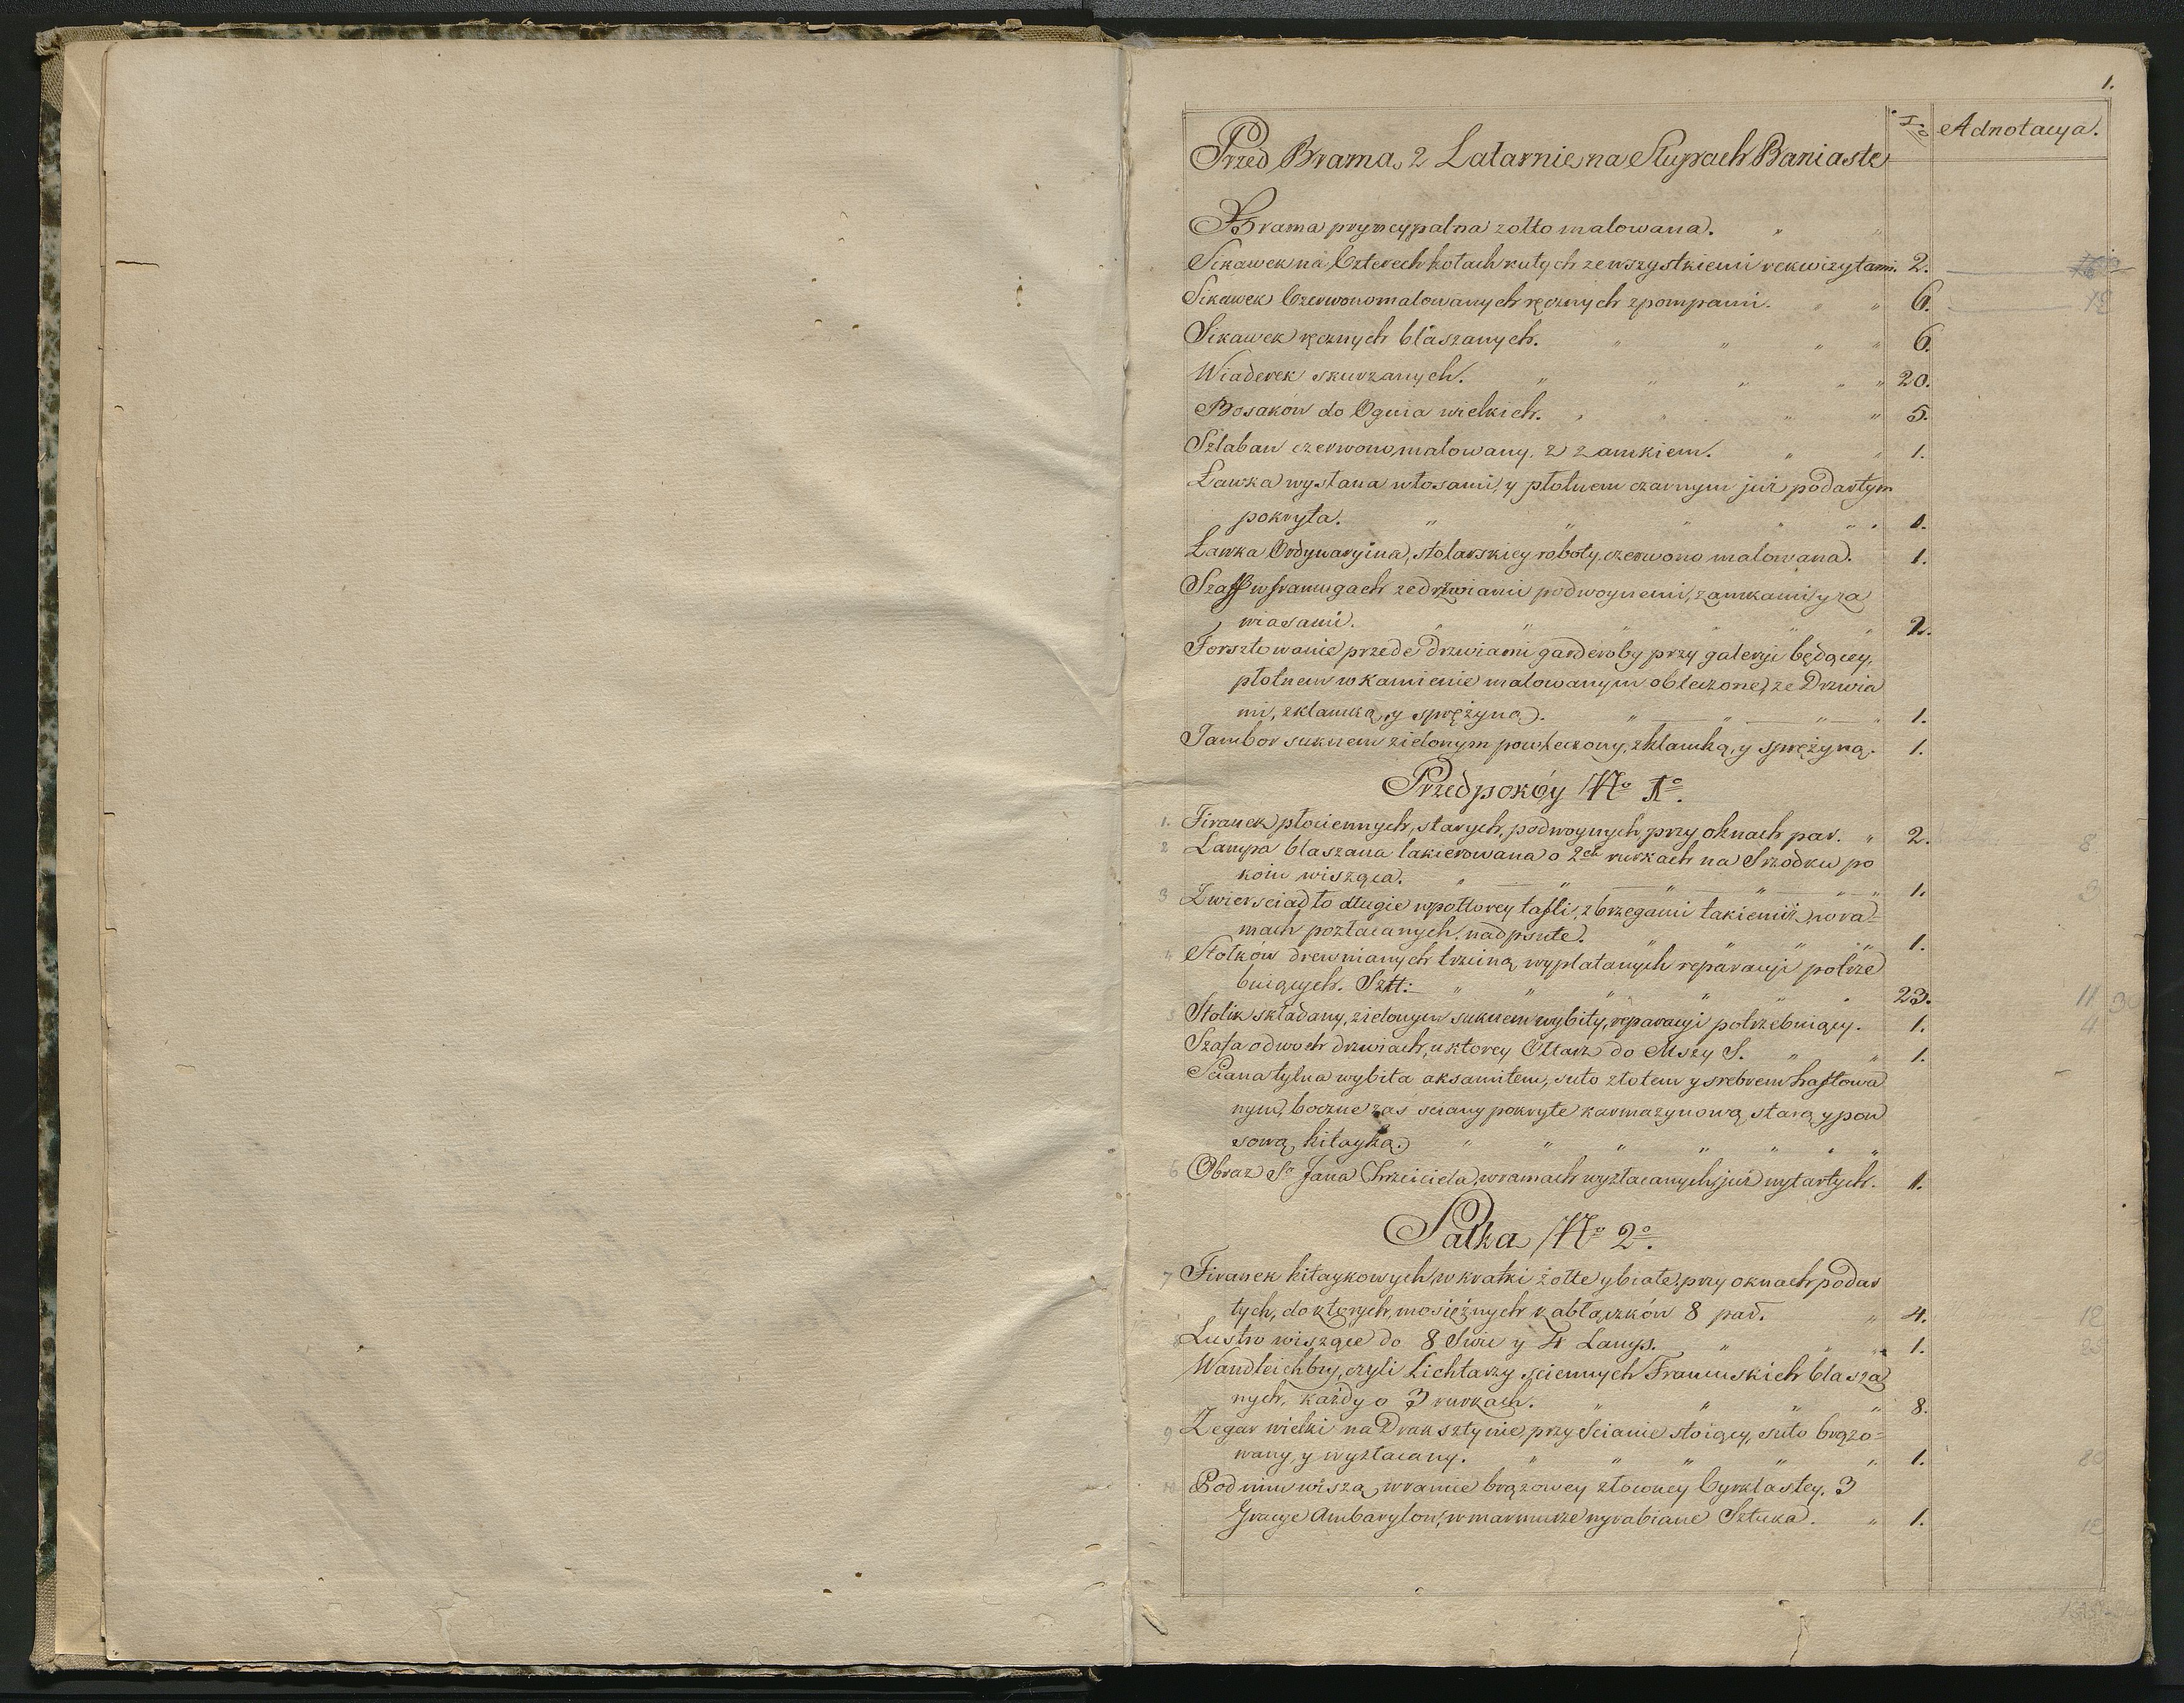 1.
Adnotacya.
Przed Bramą, 2 Latarnie na Słupach Baniaste
Brama pryncypalna zołto malowana.
Sikawek na Czterech kołach kutych ze wszystkiemi rekwizytami. 2.
Sikawek Czerwono malowanych ręcznych z pompami. 6. 18
Sikawek ręcznych blaszanych. 6.
Wiaderek skurzanych. 20.
Bosaków do Ognia wielkich. 5.
Szlaban czerwono malowany, z zamkiem. 1.
Ławka wysłana włosami, y płotnem czarnym już podartym
pokryta. 1.
Ławka Ordynaryina, stolarskiey roboty, czerwono malowana. 1.
Szaff w framugach ze drzwiami podwoynemi, zamkami, y za
wiasami. 2.
Forsztowanie przede Drzwiami garderoby przy galeryi będącey,
płotnem w kamienie malowanym obleczone, ze Drzwia
mi, z klamką, y sprężyną. 1.
Tambor suknem zielonym powleczony, z klamką, y sprężyną. 1.
Przedpokóy No 1o.
1. Firanek płociennych, starych, podwoynych, przy oknach par. 2. 8
2 Lampa blaszana lakierowana o 2ch rurkach na Srzodku po
koiu wisząca. 1.
3 Zwierściadło długie w połtorey tafli, z brzegami takiemiż, w ra- 3
mach pozłacanych, nadpsute. 1.
4 Stołków drewnianych trzciną wyplatanych reparacyi potrze
buiących. Sztt: 23. 11 30
5 Stolik składany, zielonym suknem wybity, reparacyi potrzebuiący. 1. 4
Szafa o dwoch drzwiach, w ktorey Ołtarz do Mszy S. 1.
Sciana tylna wybita aksamitem, suto złotem y srebrem haftowa
nym, boczne zas sciany pokryte karmazynową starą y pon
sową kitayką.
6 Obraz So Jana Chrzciciela, w ramach wyzłacanych, już wytartych. 1.
Salka No 2o.
7 Firanek kitaykowych, w kratki żołte y białe, przy oknach podar
tych, do ktorych, mosiężnych kabłączków 8 par. 4. 12
8 Lustro wiszące do 8 Swic y 4 Lamp. 1. 25
Wandleichtry, czyli Lichtarzy sciennych Francuskich blasza
nych, każdy o 3 rurkach. 8.
9 Zegar wielki na Draksztynie, przy Scianie stoiący, suto brązo-
wany, y wyzłacany. 1. 80
10 Pod nim wiszą, w ramie brązowey złoconey Cyrklastey, 3
Gracye Ambarylow, w marmurze wyrabiane Sztuka. 1. 12